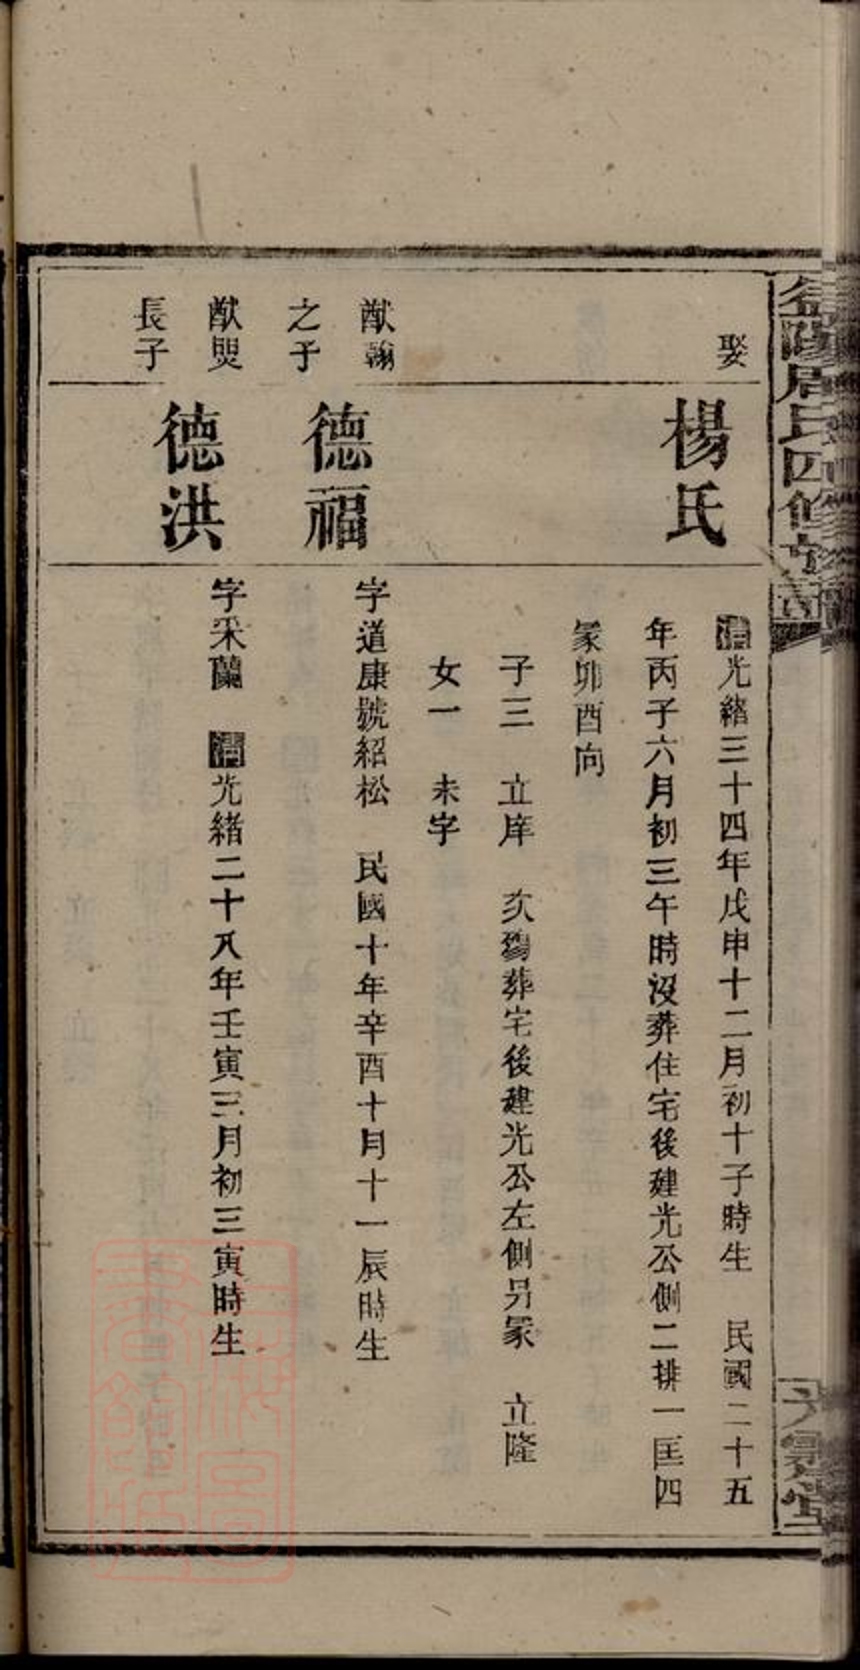 益陽周氏四修支譜
娶
楊氏
清光緒三十四年戊申十二月初十子時生 民國二十五
年丙子六月初三午時沒葬住宅後建光公側二排一匡四
冢卯酉向
子三 立庠 次殤葬宅後建光公左側另冢 立隆
女一 未字
猷翰
之子
德福
字道康號紹松 民國十年辛酉十月十一辰時生
猷煚
長子
德洪
字采蘭 清光緒二十八年壬寅三月初三寅時生
上海圖書館藏